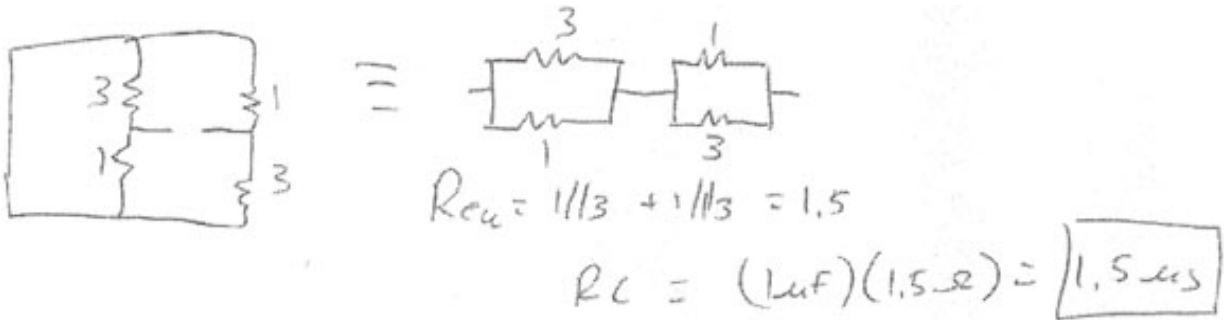 3 1 ≡ 3 1
1 3 1 3
Req = 1//3 + 1//3 = 1.5
RC = (1uf)(1.5Ω) = 1.5 us